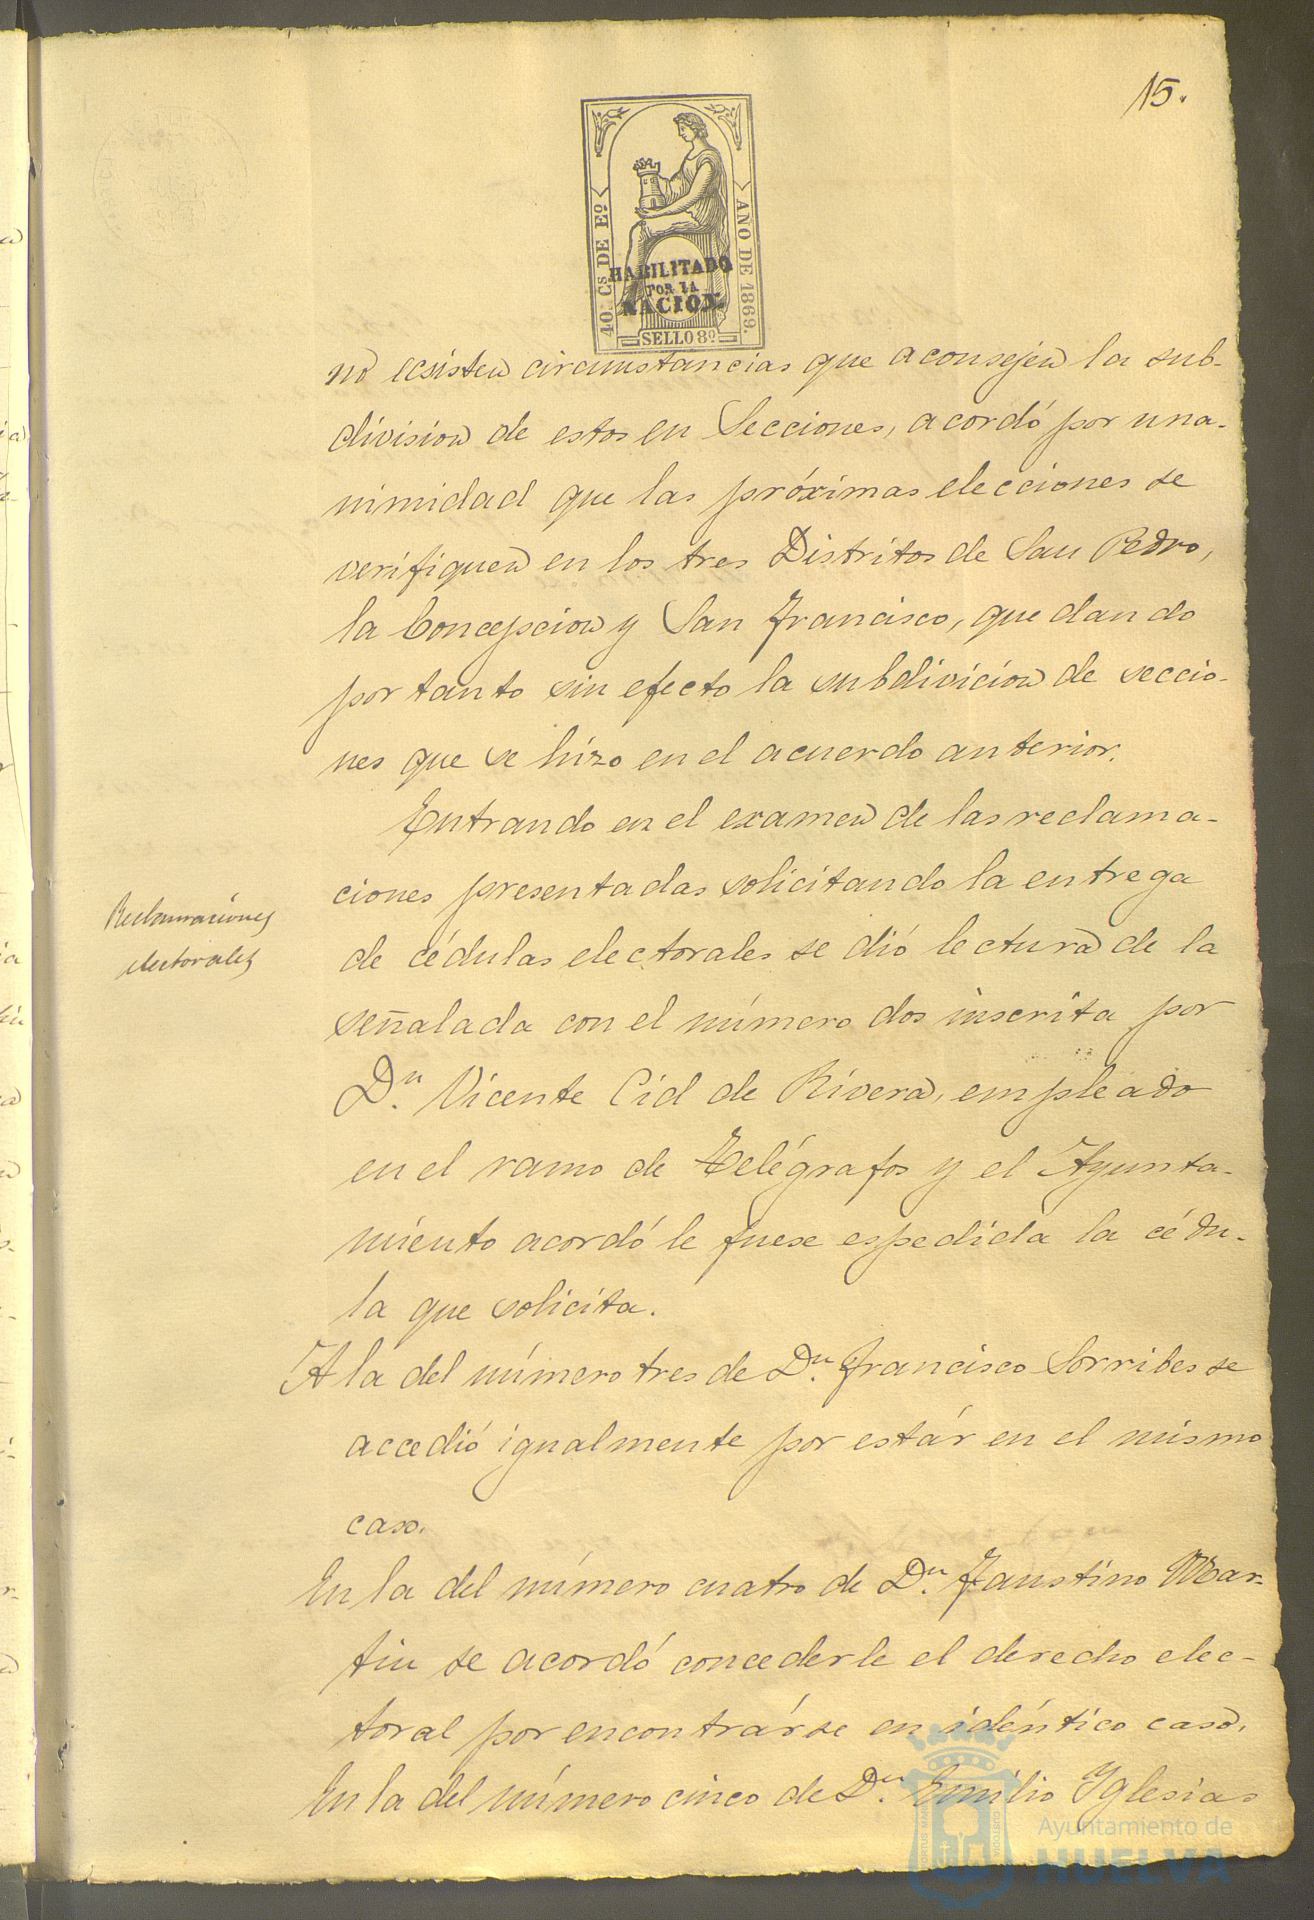 15.
40. Cs DE Eº
AÑO DE 1869.
HABILITADO
POR LA
NACION.
SELLO 8º
no ecsisten circunstancias que aconsejen la sub-
division de estos en Secciones, acordó por una-
nimidad que las próximas elecciones se
verifiquen en los tres Distritos de San Pedro,
la Concepcion y San Francisco, quedando
por tanto sin efecto la subdivicion de seccio-
nes que se hizo en el acuerdo anterior.
Entrando en el examen de las reclama-
ciones presentadas solicitando la entrega
Reclamaciones
electorales
de cédulas electorales se dió lectura de la
señalada con el número dos inscrita por
Dn. Vicente Cid de Rivera, empleado
en el ramo de Telégrafos y el Ayunta-
miento acordó le fuese espedida la cédu-
la que solicita.
A la del número tres de Dn. Francisco Sorribes se
accedió igualmente por estár en el mismo
caso.
En la del número cuatro de Dn. Faustino Mar-
tin se acordó concederle el derecho elec-
toral por encontrárse en idéntico caso.
En la del número cinco de Dn. Emilio Yglesias
Ayuntamiento de
HUELVA